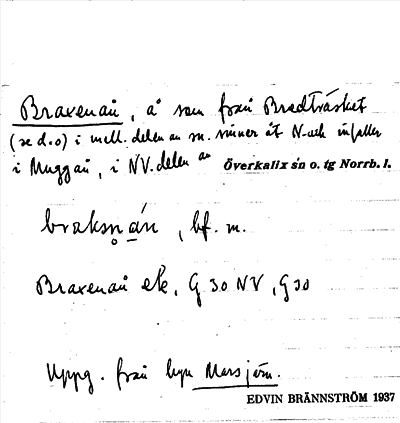 Braxenån, å som från Bredträsket
(se d.o) i mell. delen av sn. rinner åt N och infaller
i Muggån, i NV. delen av Överkalix sn o. tg Norrb. l.
braksn̥án, bf. m.
Braxenån ek. G 30 NV, G 30
Uppg. från byn Mersjärn.
EDVIN BRÄNNSTRÖM 1937